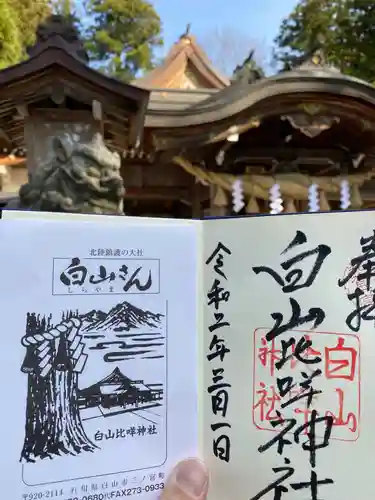 北陸鎮護の大社
白山さん
しらやま
白山比咩神社
〒920-2114 石川県白山市三ノ宮町
0680 FAX273-
奉拝
白山比咩神社
白山
比咩
神社
令和二年三月一日